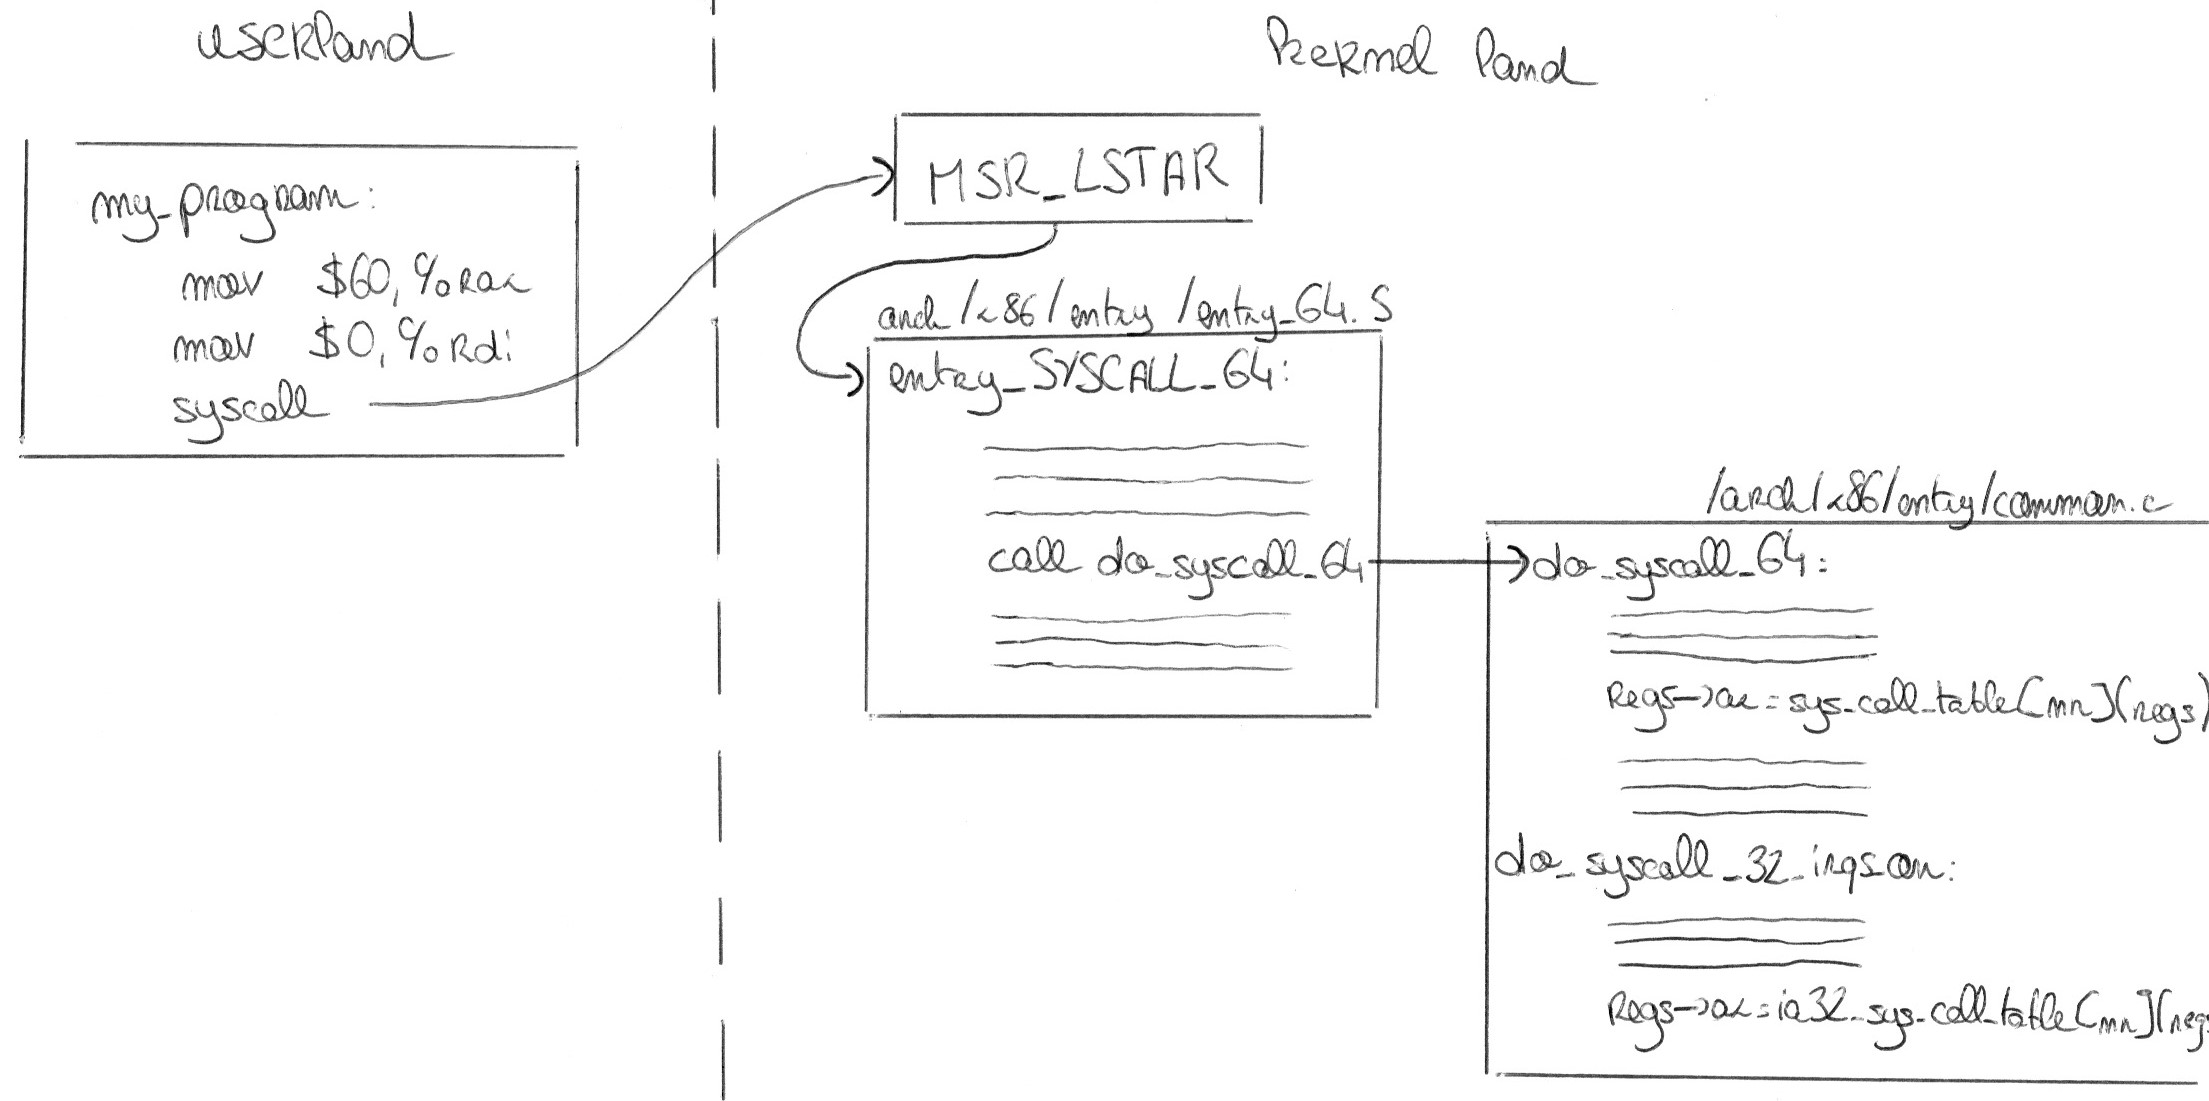 userland
kernel land
my_program:
mov $60, %rax
mov $0, %rdi
syscall
MSR_LSTAR
arch/x86/entry/entry_64.S
entry_SYSCALL_64:
call do_syscall_64
/arch/x86/entry/common.c
do_syscall_64:
regs->ax = sys_call_table[nr](regs)
do_syscall_32_irqs_on:
regs->ax = ia32_sys_call_table[nr](regs